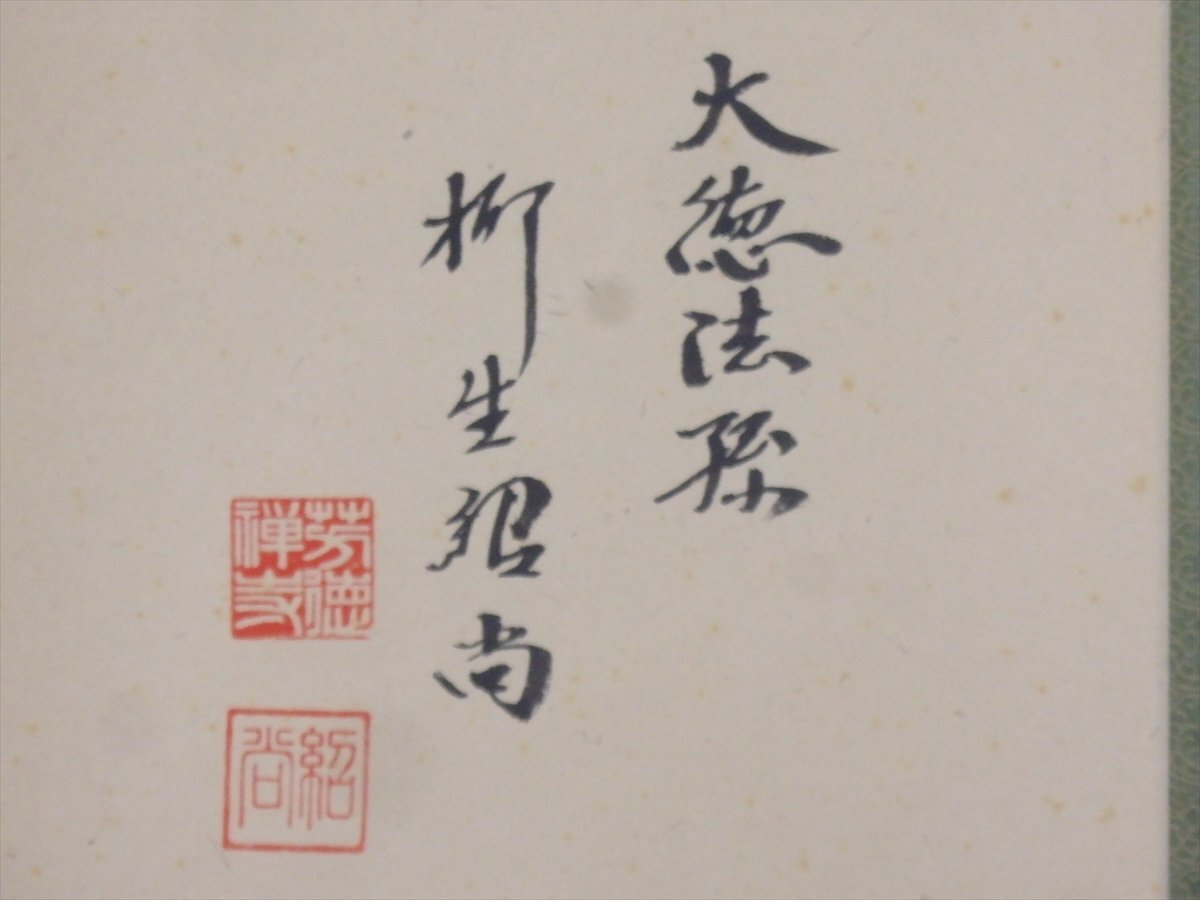 大徳法孫
柳生紹尚
芳徳
禅寺
紹尚